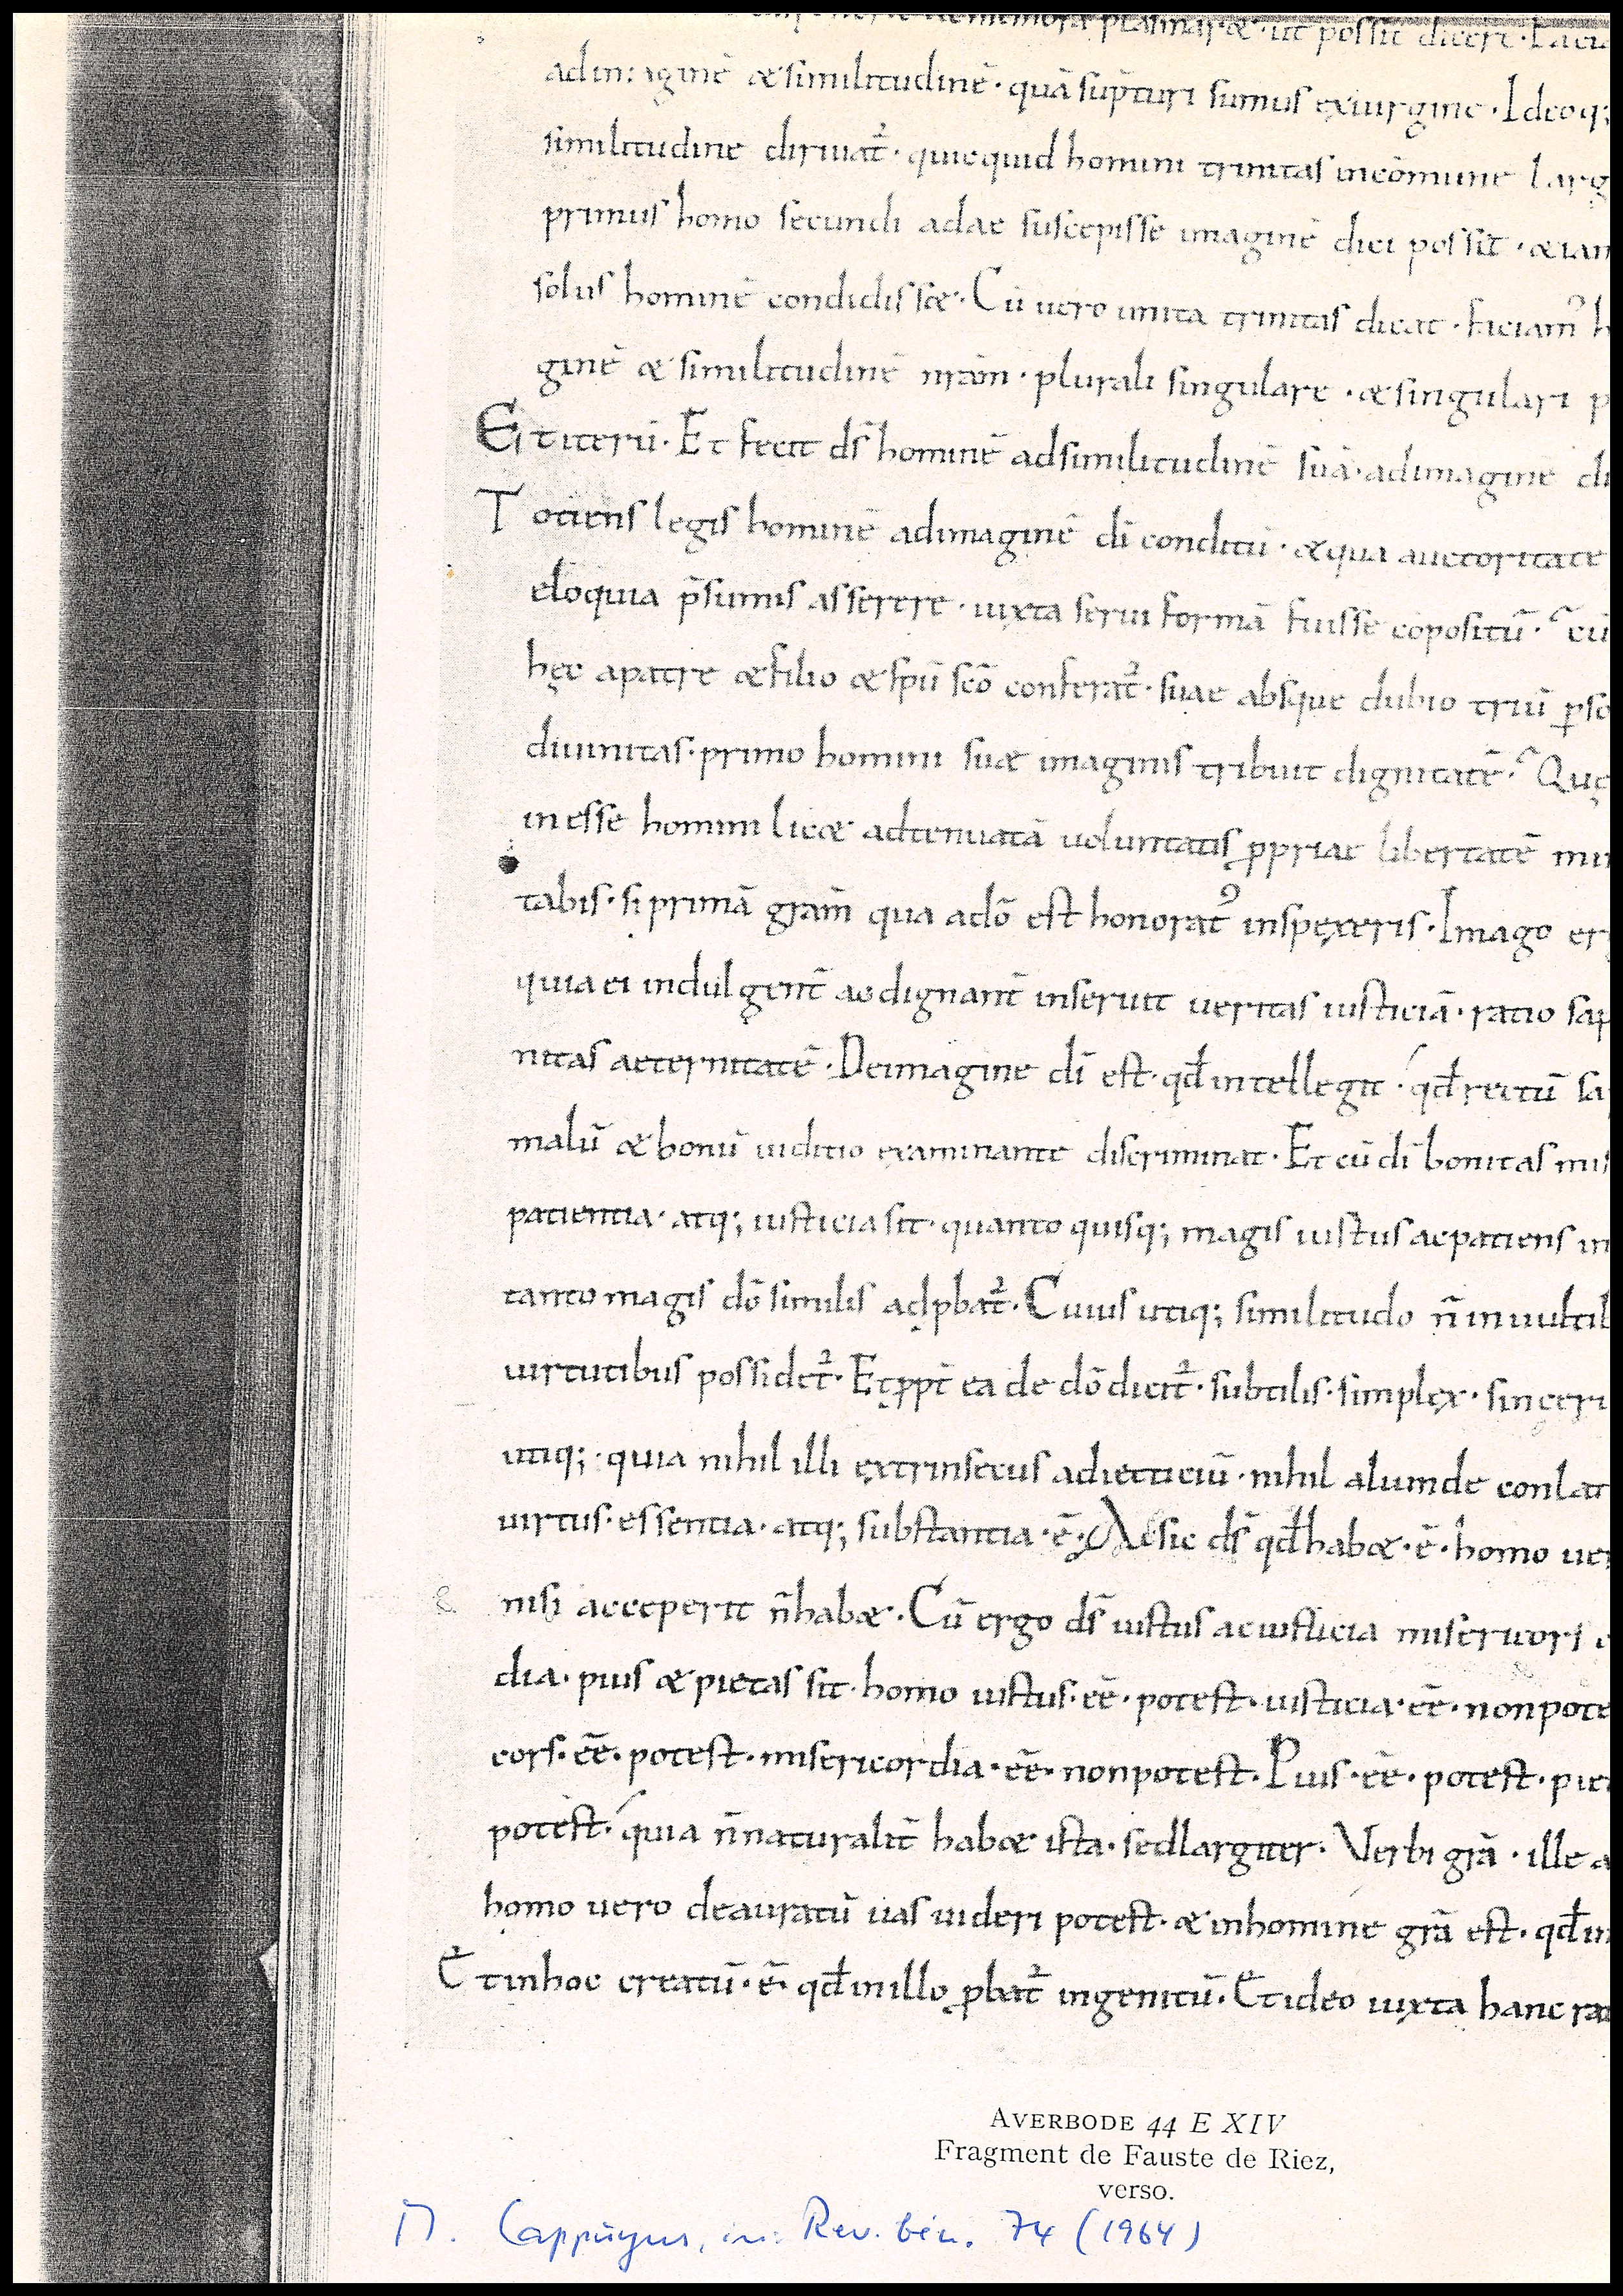 plasmaræ · ut possit diceri · Facia
ad imaginē æ similitudinē · quā sūpturi sumus ex uirgine · Ideoq;
similitudine diriuat᷑ · quicquid homini trinitas in cōmune larg
primus homo secundi adae suscepisse imaginē dici possit · æ iam
solus hominē condidissæ · Cū uero unita trinitas dicat · faciam᷒ h
ginē æ similitudinē nr̄am · plurali singulare · æ singulari p
Et iterū · Et fecit d̄s hominē ad similitudinē suā · ad imaginē di
Totiens legis hominē ad imaginē dī conditū · æ qua auctoritate
eloquia p̄sumis asserere · iuxta serui formā fuisse cōpositū · cū
hęc a patre æ filio æ sp̄u sc̄o conferat᷑ · suae absque dubio triū ꝑso
diuinitas · primo homini suæ imaginis tribuit dignitatē · Quę
inesse homini licæ adtenuatā uoluntatis ꝓpriae libertatē mi
tabis · si primā gr̄am qua a dō est honorat᷒ inspęxeris · Imago er
quia ei indulgent̄ ac dignant̄ inseruit ueritas iusticiā · ratio sap
nitas aeternitatē · De imagine dī est · qđ intellegit · qđ rectū sa
malū æ bonū iuditio examinante discriminat · Et cū dī bonitas mis
patientia · atq; iusticia sit · quanto quisq; magis iustus ac patiens in
tanto magis dō similis adꝓbat᷑ · Cuius utiq; similitudo n̄ in uultib
uirtutibus possidet᷑ · Et ꝓpt̄ ea de dō dicit᷑ · subtilis · simplęx · sinceri
utiq; · quia nihil illi ęxtrinsecus adiecticiū · nihil aliunde conlat
uirtus · essentia · atq; substantia · ē · Ac sic d̄s qđ habæ · ē · homo ue
nisi acceperit n̄ habæ · Cū ergo d̄s iustus ac iusticia misericors
dia · pius æ pietas sit · homo iustus · ēē · potest · iusticia · ēē · non pote
cors · ēē · potest · misericordia · ēē · non potest · Pius · ēē · potest · pie
potest · quia n̄ naturalit̄ habæ ista · sed largiter · Verbi grā · ille a
homo uero deauratū uas uideri potest · æ in homine grā est · qđ in
Et in hoc creatū · ē · qđ in illo ꝓbat᷑ ingenitū · Et ideo iuxta hanc ra
AVERBODE 44 E XIV
Fragment de Fauste de Riez,
verso.
M. Cappuyns, in: Rev. bén. 74 (1964)